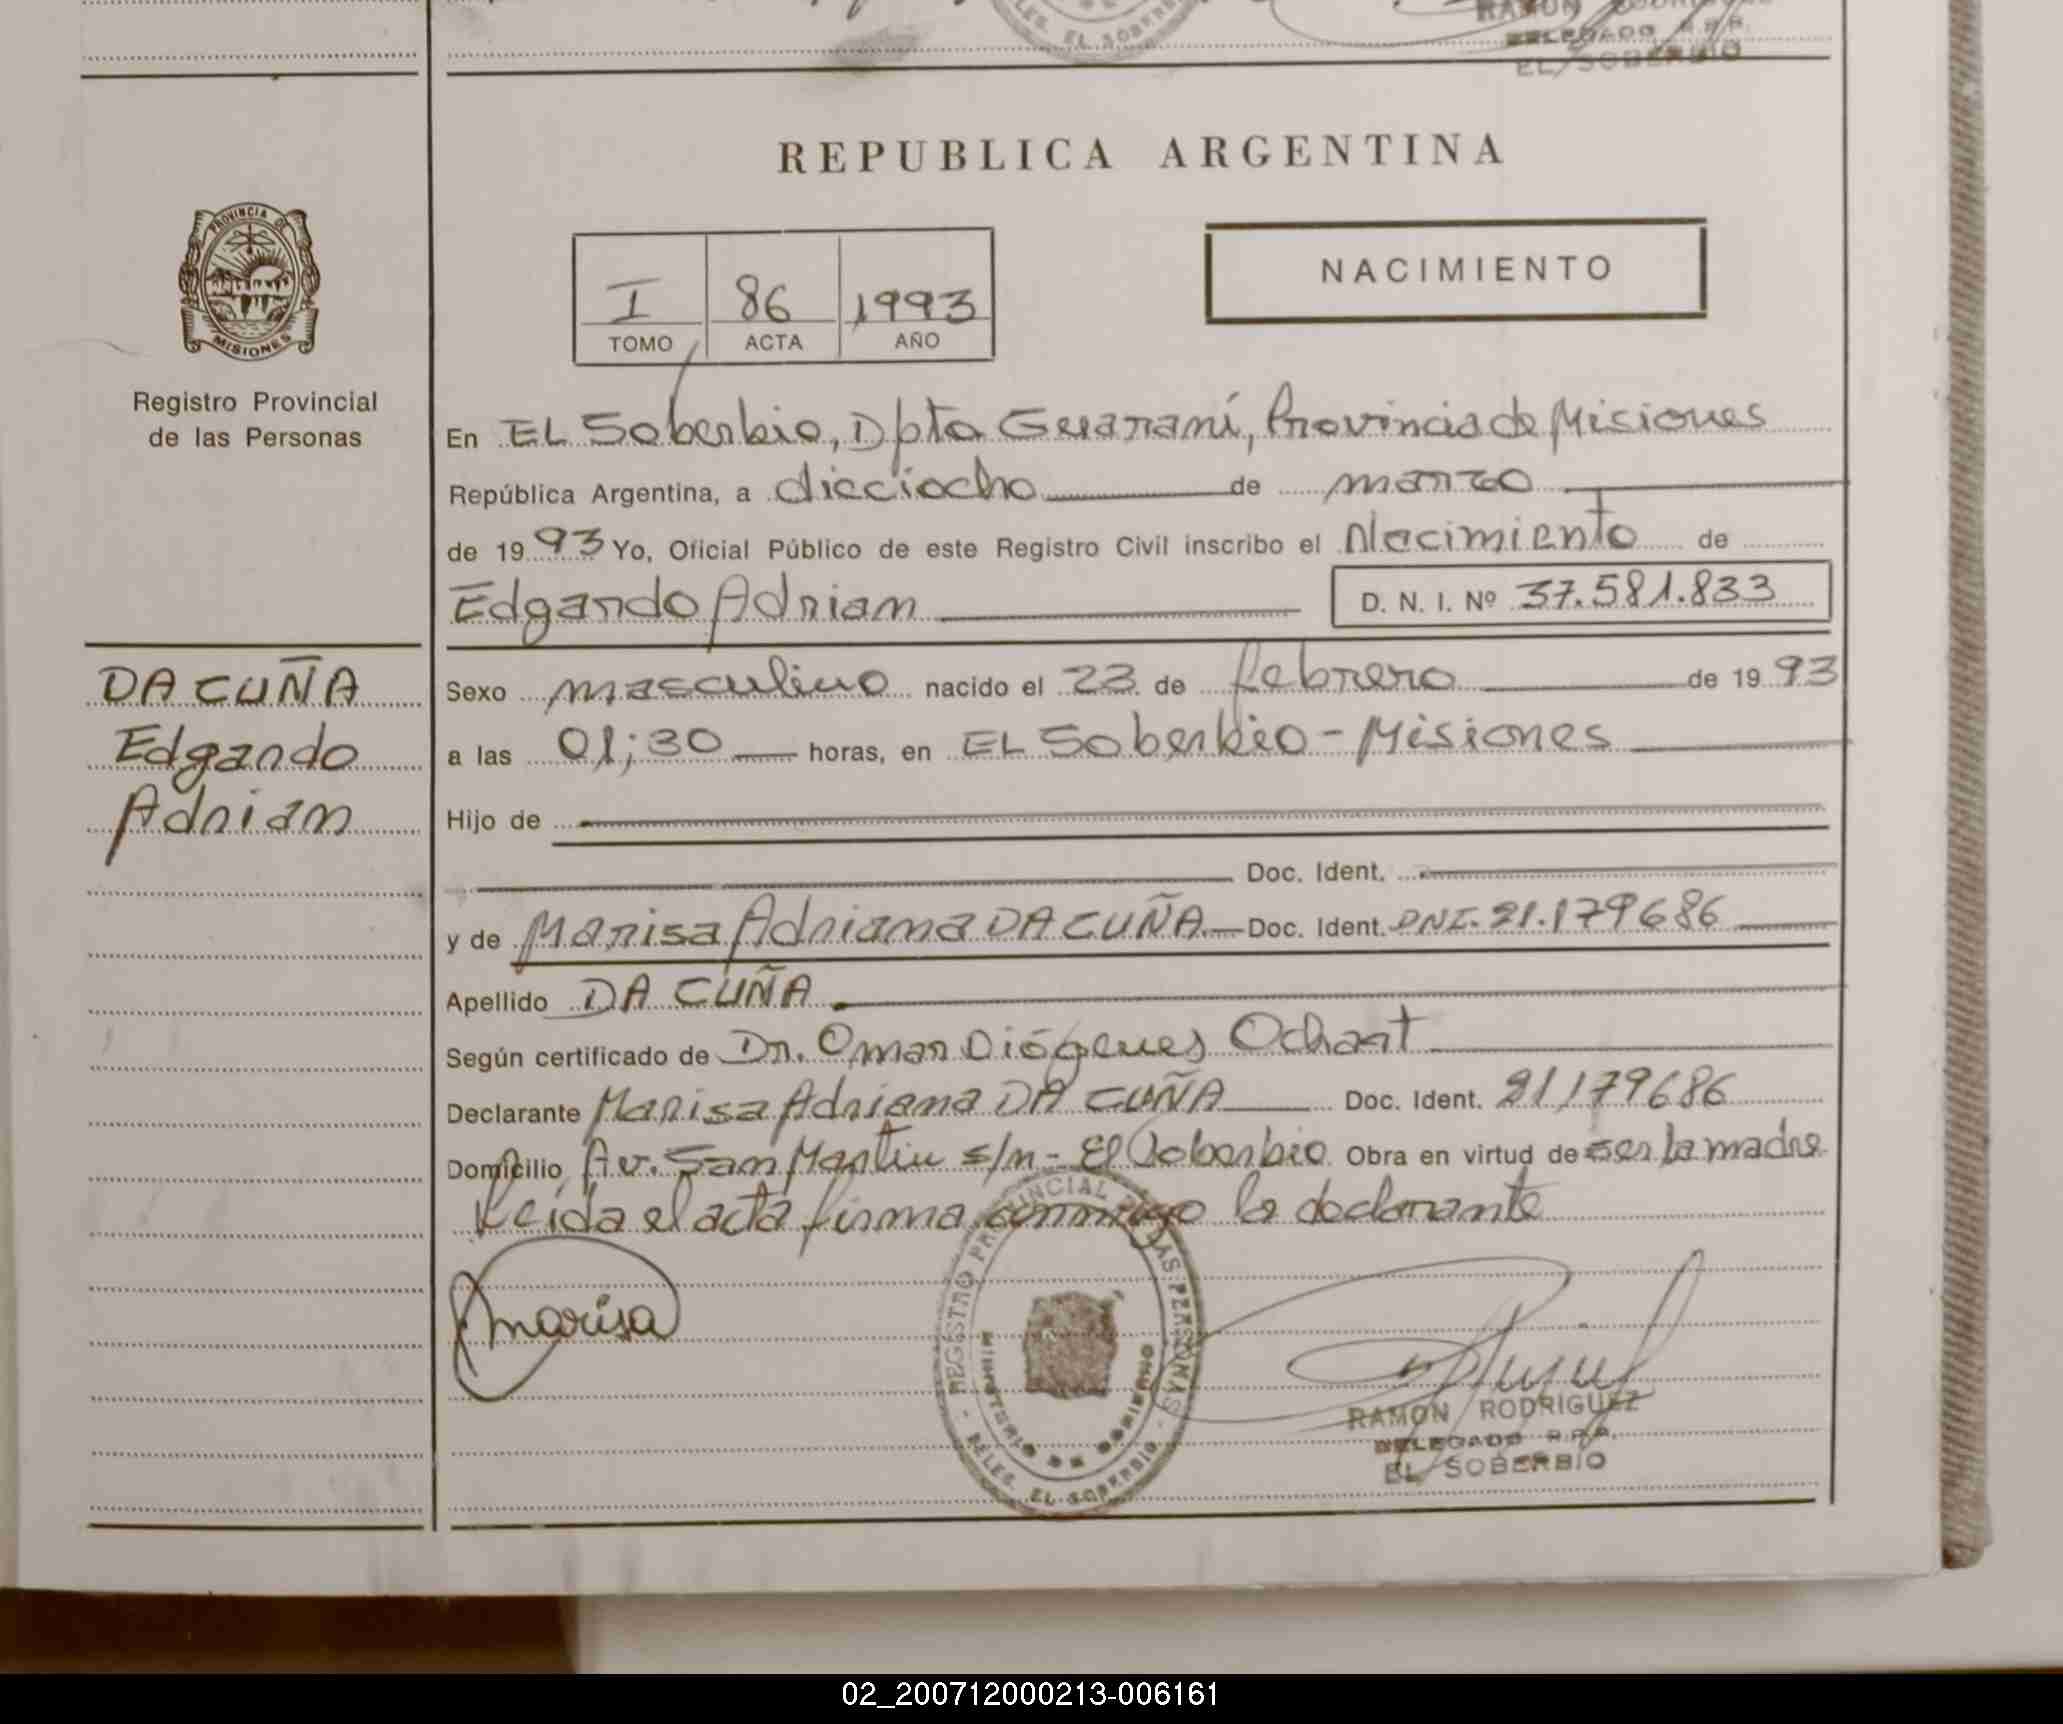 RAMON RODRIGUEZ
DELES. EL SOBERBIO
DELEGADO R.P.P.
EL SOBERBIO
REPUBLICA ARGENTINA
PROVINCIA DE
MISIONES
Registro Provincial
de las Personas
I 86 1993
TOMO ACTA AÑO
NACIMIENTO
En EL Soberbio, Dpto Guaraní, Provincia de Misiones
República Argentina, a dieciocho de marzo
de 1993 Yo, Oficial Público de este Registro Civil inscribo el Nacimiento de
Edgardo Adrian D. N. I. Nº 37.581.833
DA CUÑA
Edgardo
Adrian
Sexo masculino nacido el 23 de febrero de 1993
a las 01;30 horas, en EL Soberbio - Misiones
Hijo de
Doc. Ident.
y de Marisa Adriana DA CUÑA.— Doc. Ident. DNI. 21.179686
Apellido DA CUÑA
Según certificado de Dr. Omar Diógenes Ochart
Declarante Marisa Adriana DA CUÑA Doc. Ident. 21179686
Domicilio Av. San Martin s/n - El Soberbio Obra en virtud de ser la madre
Leida el acta firma conmigo la declarante
marisa
REGISTRO PROVINCIAL DE LAS PERSONAS
MINISTERIO DE GOBIERNO
DELES. EL SOBERBIO
RAMON RODRIGUEZ
DELEGADO R.P.P.
EL SOBERBIO
02_200712000213-006161